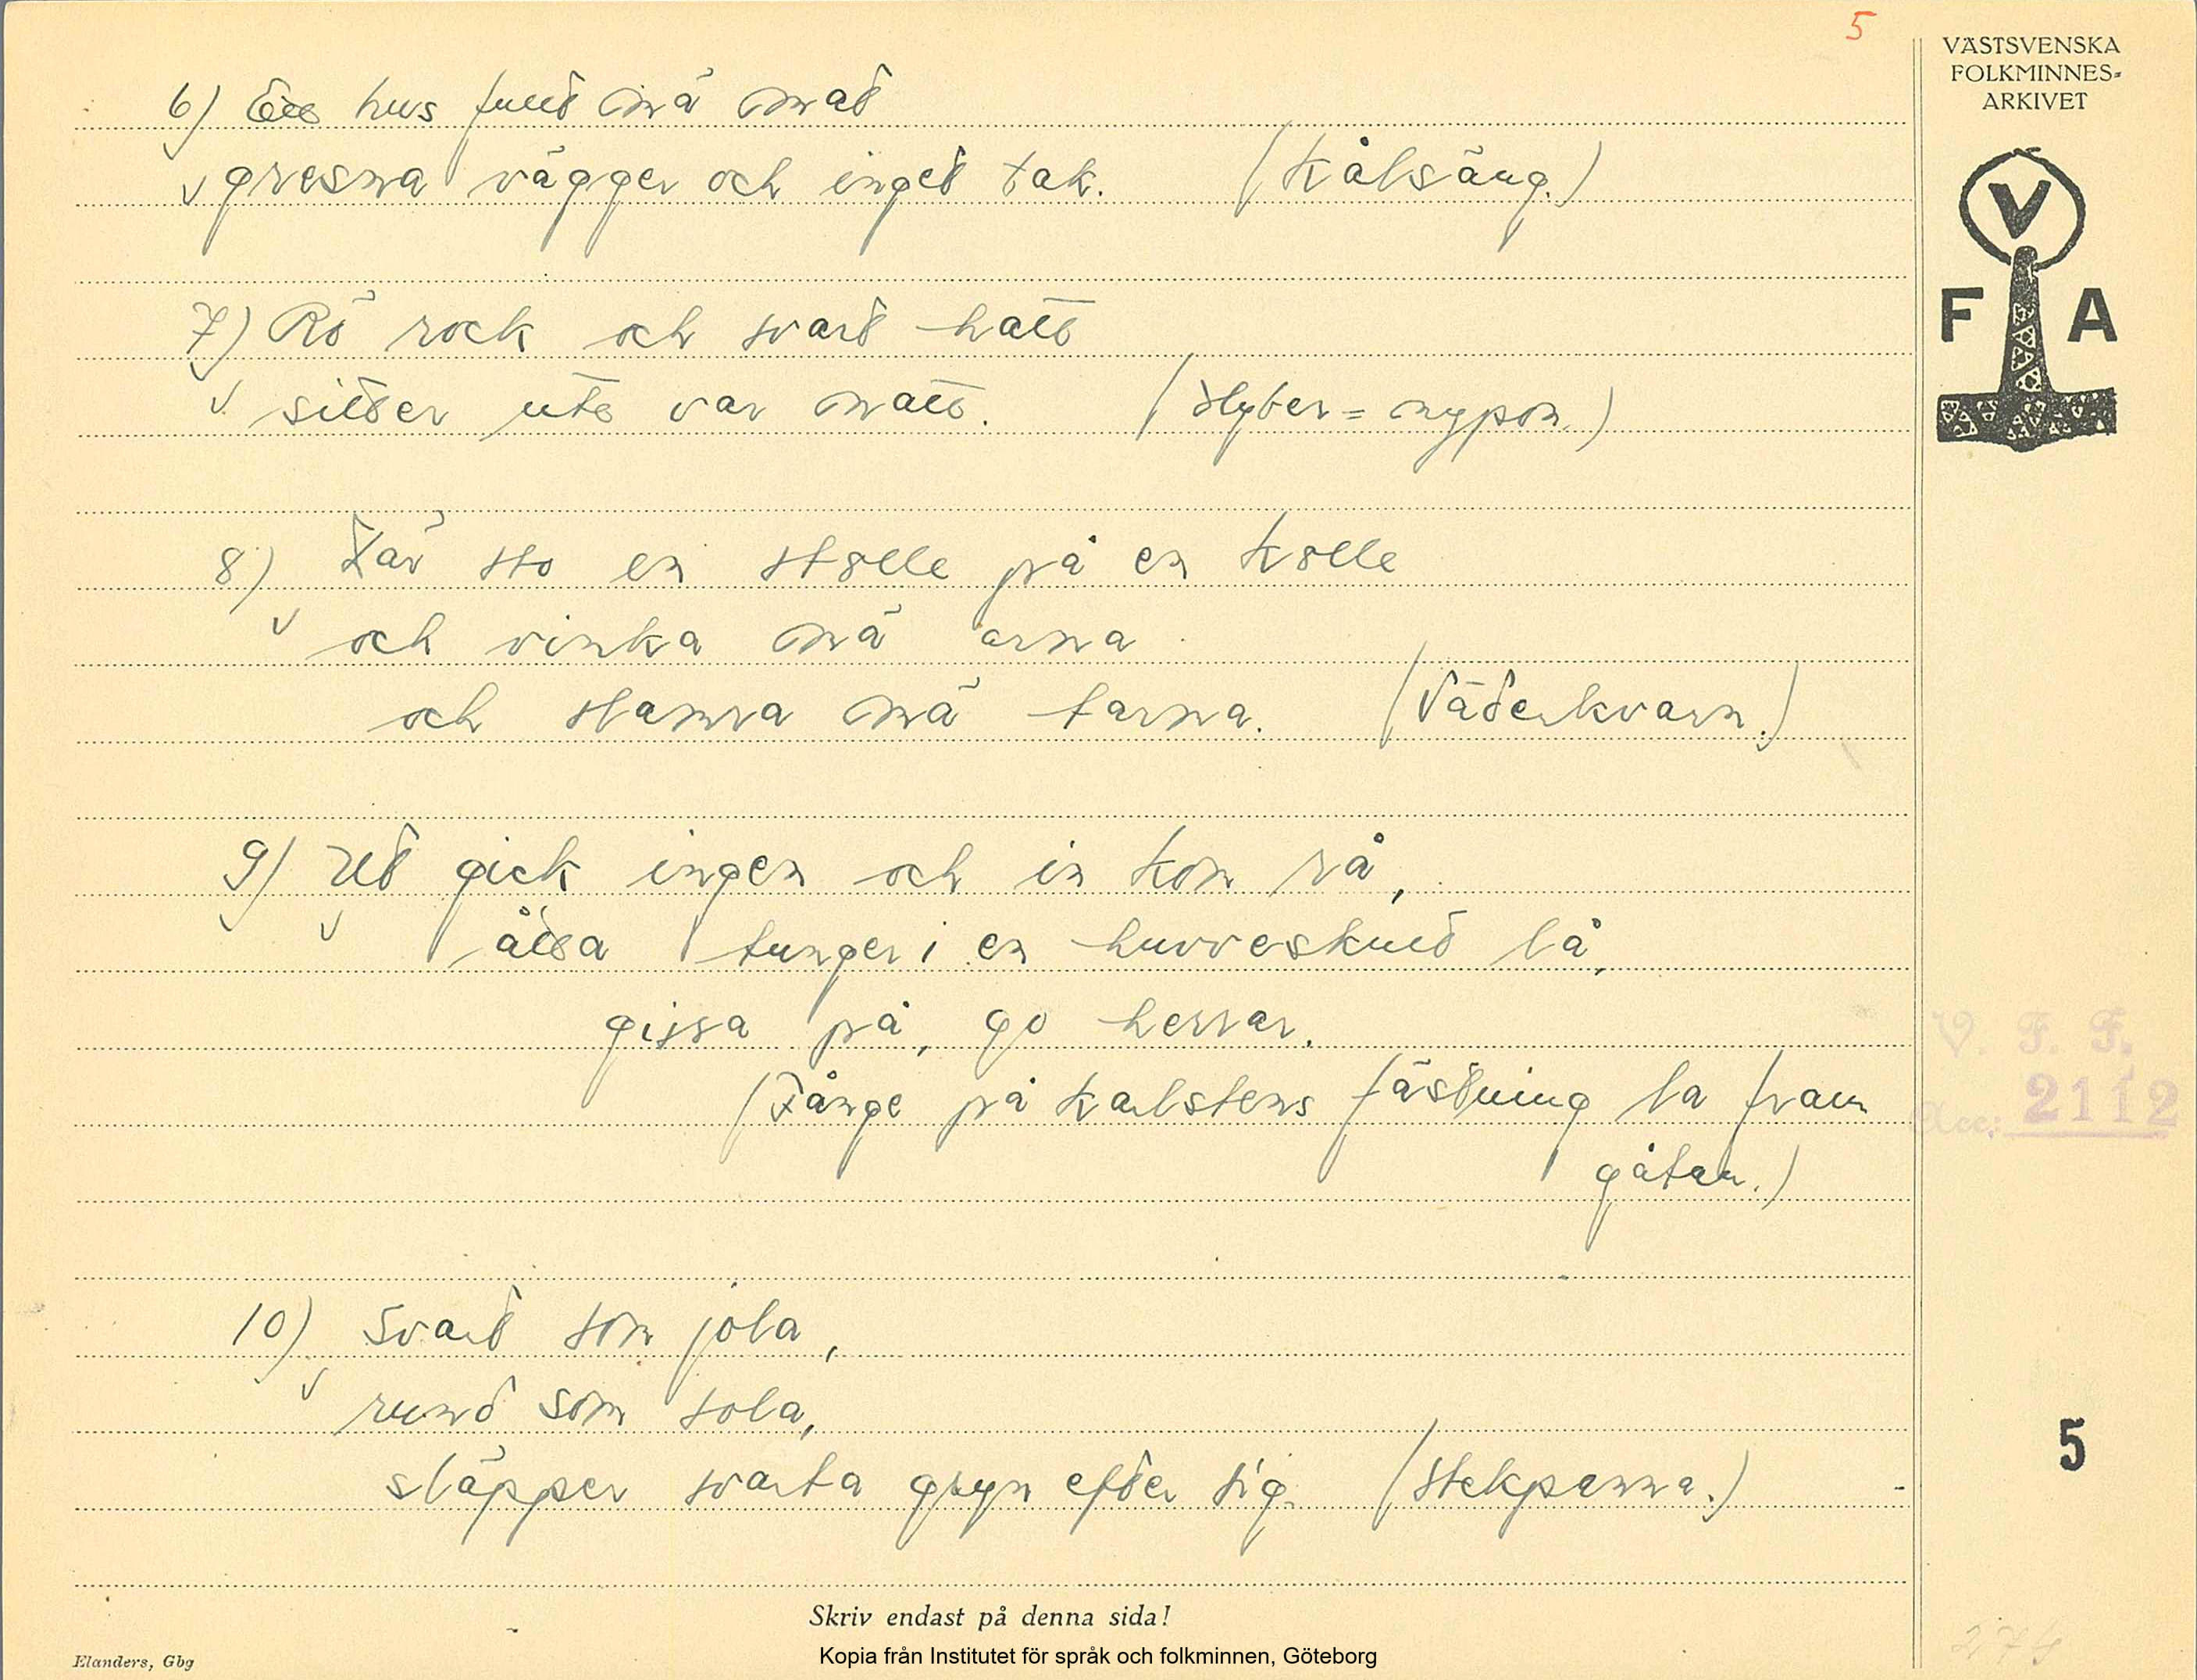 5
VÄSTSVENSKA
FOLKMINNES-
ARKIVET
V
F A
6) Ett hus fullt mä mat
gresna vägger och inget tak. (Kålsäng.)
7) Rö rock och svart hatt
sitter ute var natt. (Hyber = nypon.)
8) Där sto en stolle på en kolle
och vinka mä arna
och stamra mä tarna. (Väderkvarn.)
9) Ut gick ingen och in kom två,
åtta tunger i en huvveskult lå,
gissa på, go herrar.
(Fånge på Karlstens fästning la fram
gåtan.)
V. F. F.
Acc: 2112
10) Svart som jola,
rund som sola,
släpper svarta gryn efter sig. (Stekpanna.)
5
Skriv endast på denna sida!
Kopia från Institutet för språk och folkminnen, Göteborg
Elanders, Gbg